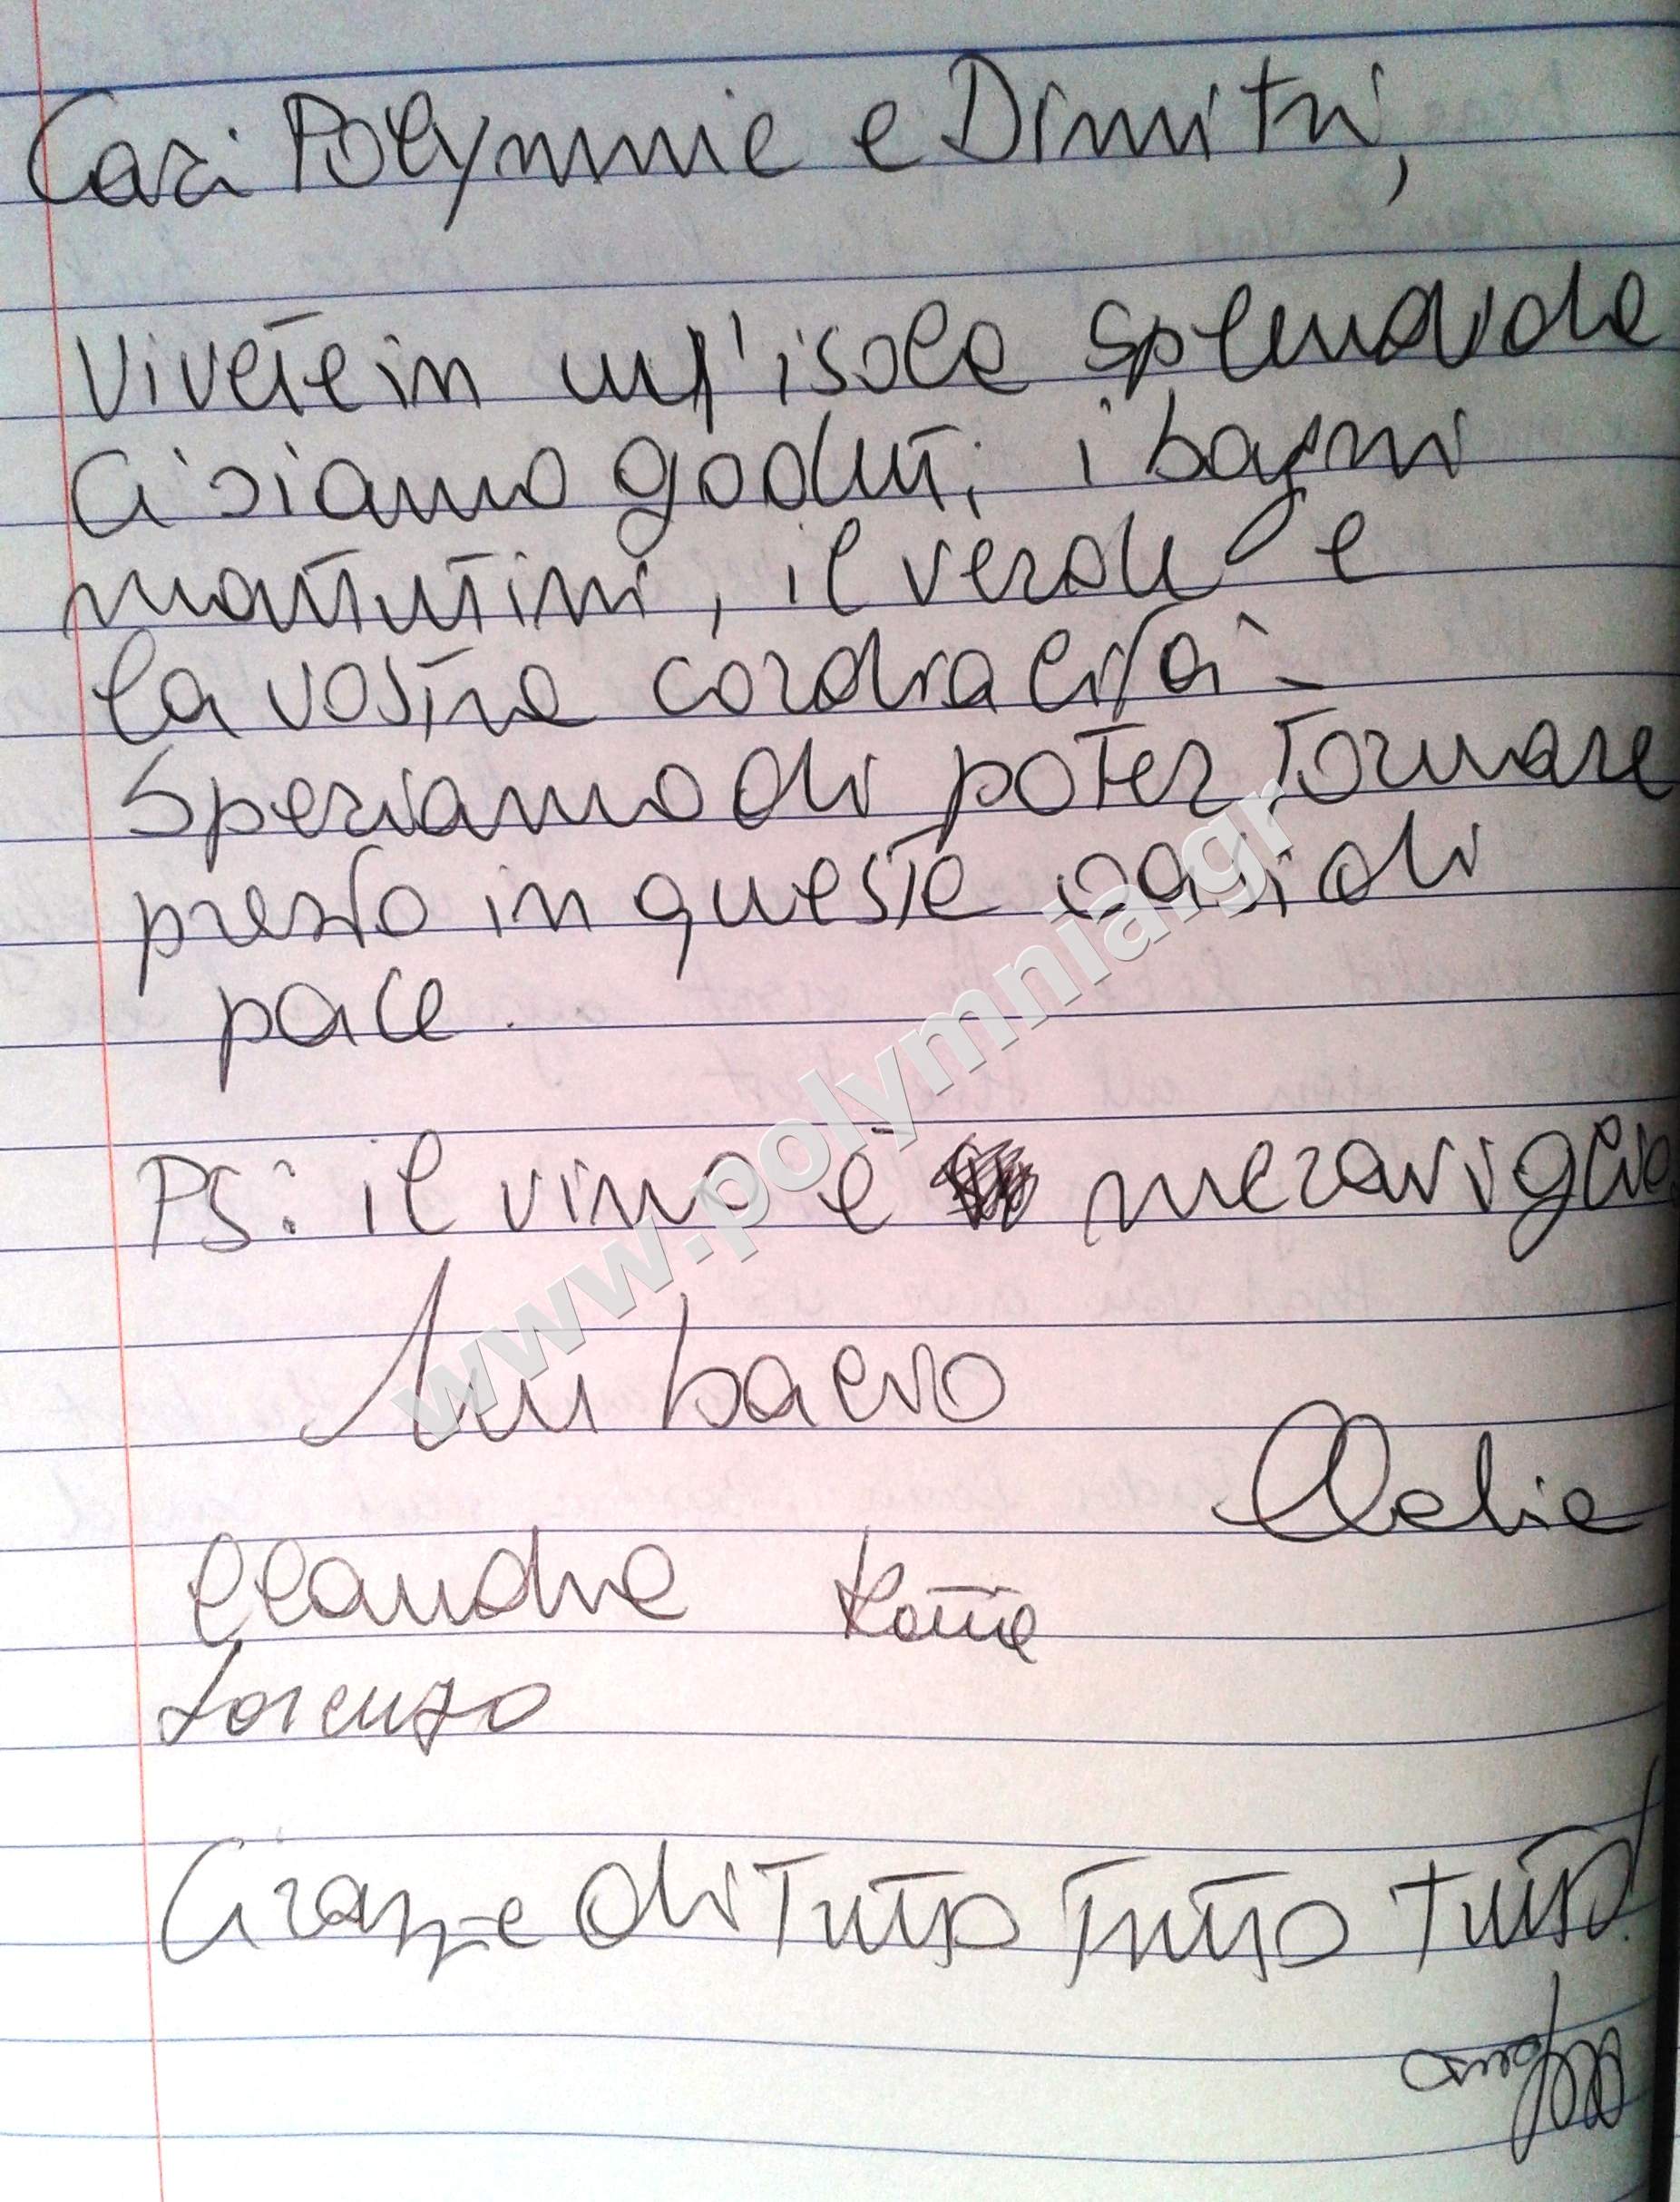 Cari Polymnia e Dimitri,
Vivete in un'isola splendida
Ci siamo goduti; i bagni
mattutini, il verde e
la vostra cordialità.
Speriamo di poter tornare
presto in questa oasi di
pace.
PS: il vino è meraviglio
Un bacio
Clelia
Claudia Katia
Lorenzo
Grazie di tutto tutto tutto!
www.polymnia.gr